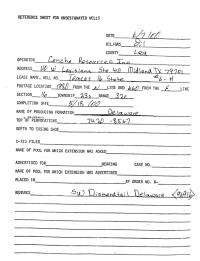 REFERENCE SHEET FOR UNDESIGNATED WELLS
DATE 6/7/00
OIL/GAS Oil
COUNTY Lea
OPERATOR Concho Resources Inc
ADDRESS 110 W Louisiana Ste 410 Midland TX 79701
LEASE NAME, WELL NO. 16 State #6-H
FOOTAGE LOCATION 1980 FROM THE N LINE AND 660 FROM THE E LINE
SECTION 16 TOWNSHIP 23s RANGE 32e
COMPLETION DATE 5/18/00
NAME OF PRODUCING FORMATION Delaware
TOP OF PERFORATIONS 7420 - 8567
DEPTH TO CASING SHOE
C-123 FILED
NAME OF POOL FOR WHICH EXTENSION WAS ASKED
ADVERTISED FOR HEARING CASE NO.
NAME OF POOL FOR WHICH EXTENSION WAS ADVERTISED
PLACED IN BY ORDER NO. R-
REMARKS Delaware